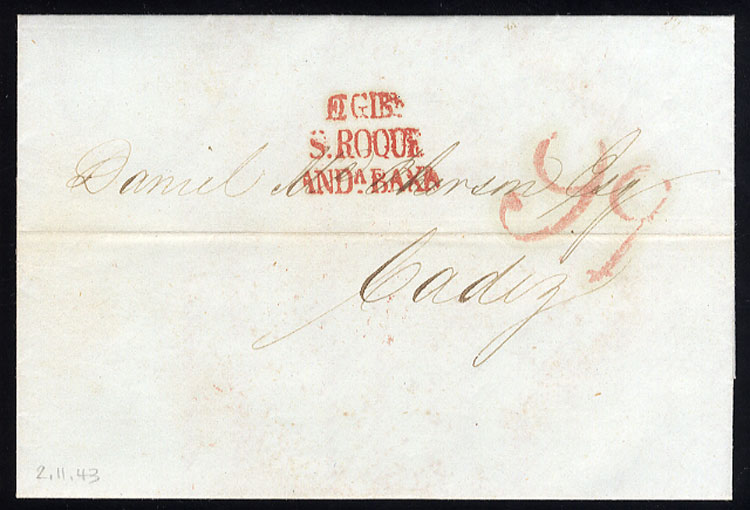 Gᴵᴮᴿ
S. ROQUE
ANDᴬ BAXA
Daniel Esqr
Cadiz
2.11.43